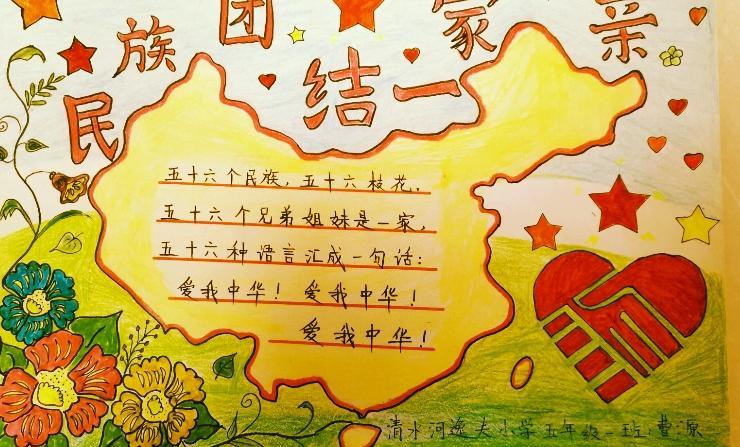 民族团结一家亲
五十六个民族，五十六枝花。
五十六个兄弟姐妹是一家，
五十六种语言汇成一句话：
爱我中华！ 爱我中华！
爱我中华！
清水河逸夫小学五年级一班：曹源